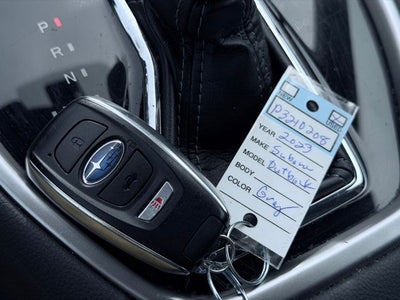 P
R
N
NEW
USED
P321D208
YEAR 2023
MAKE Subaru
MODEL Outback
BODY
COLOR Gray